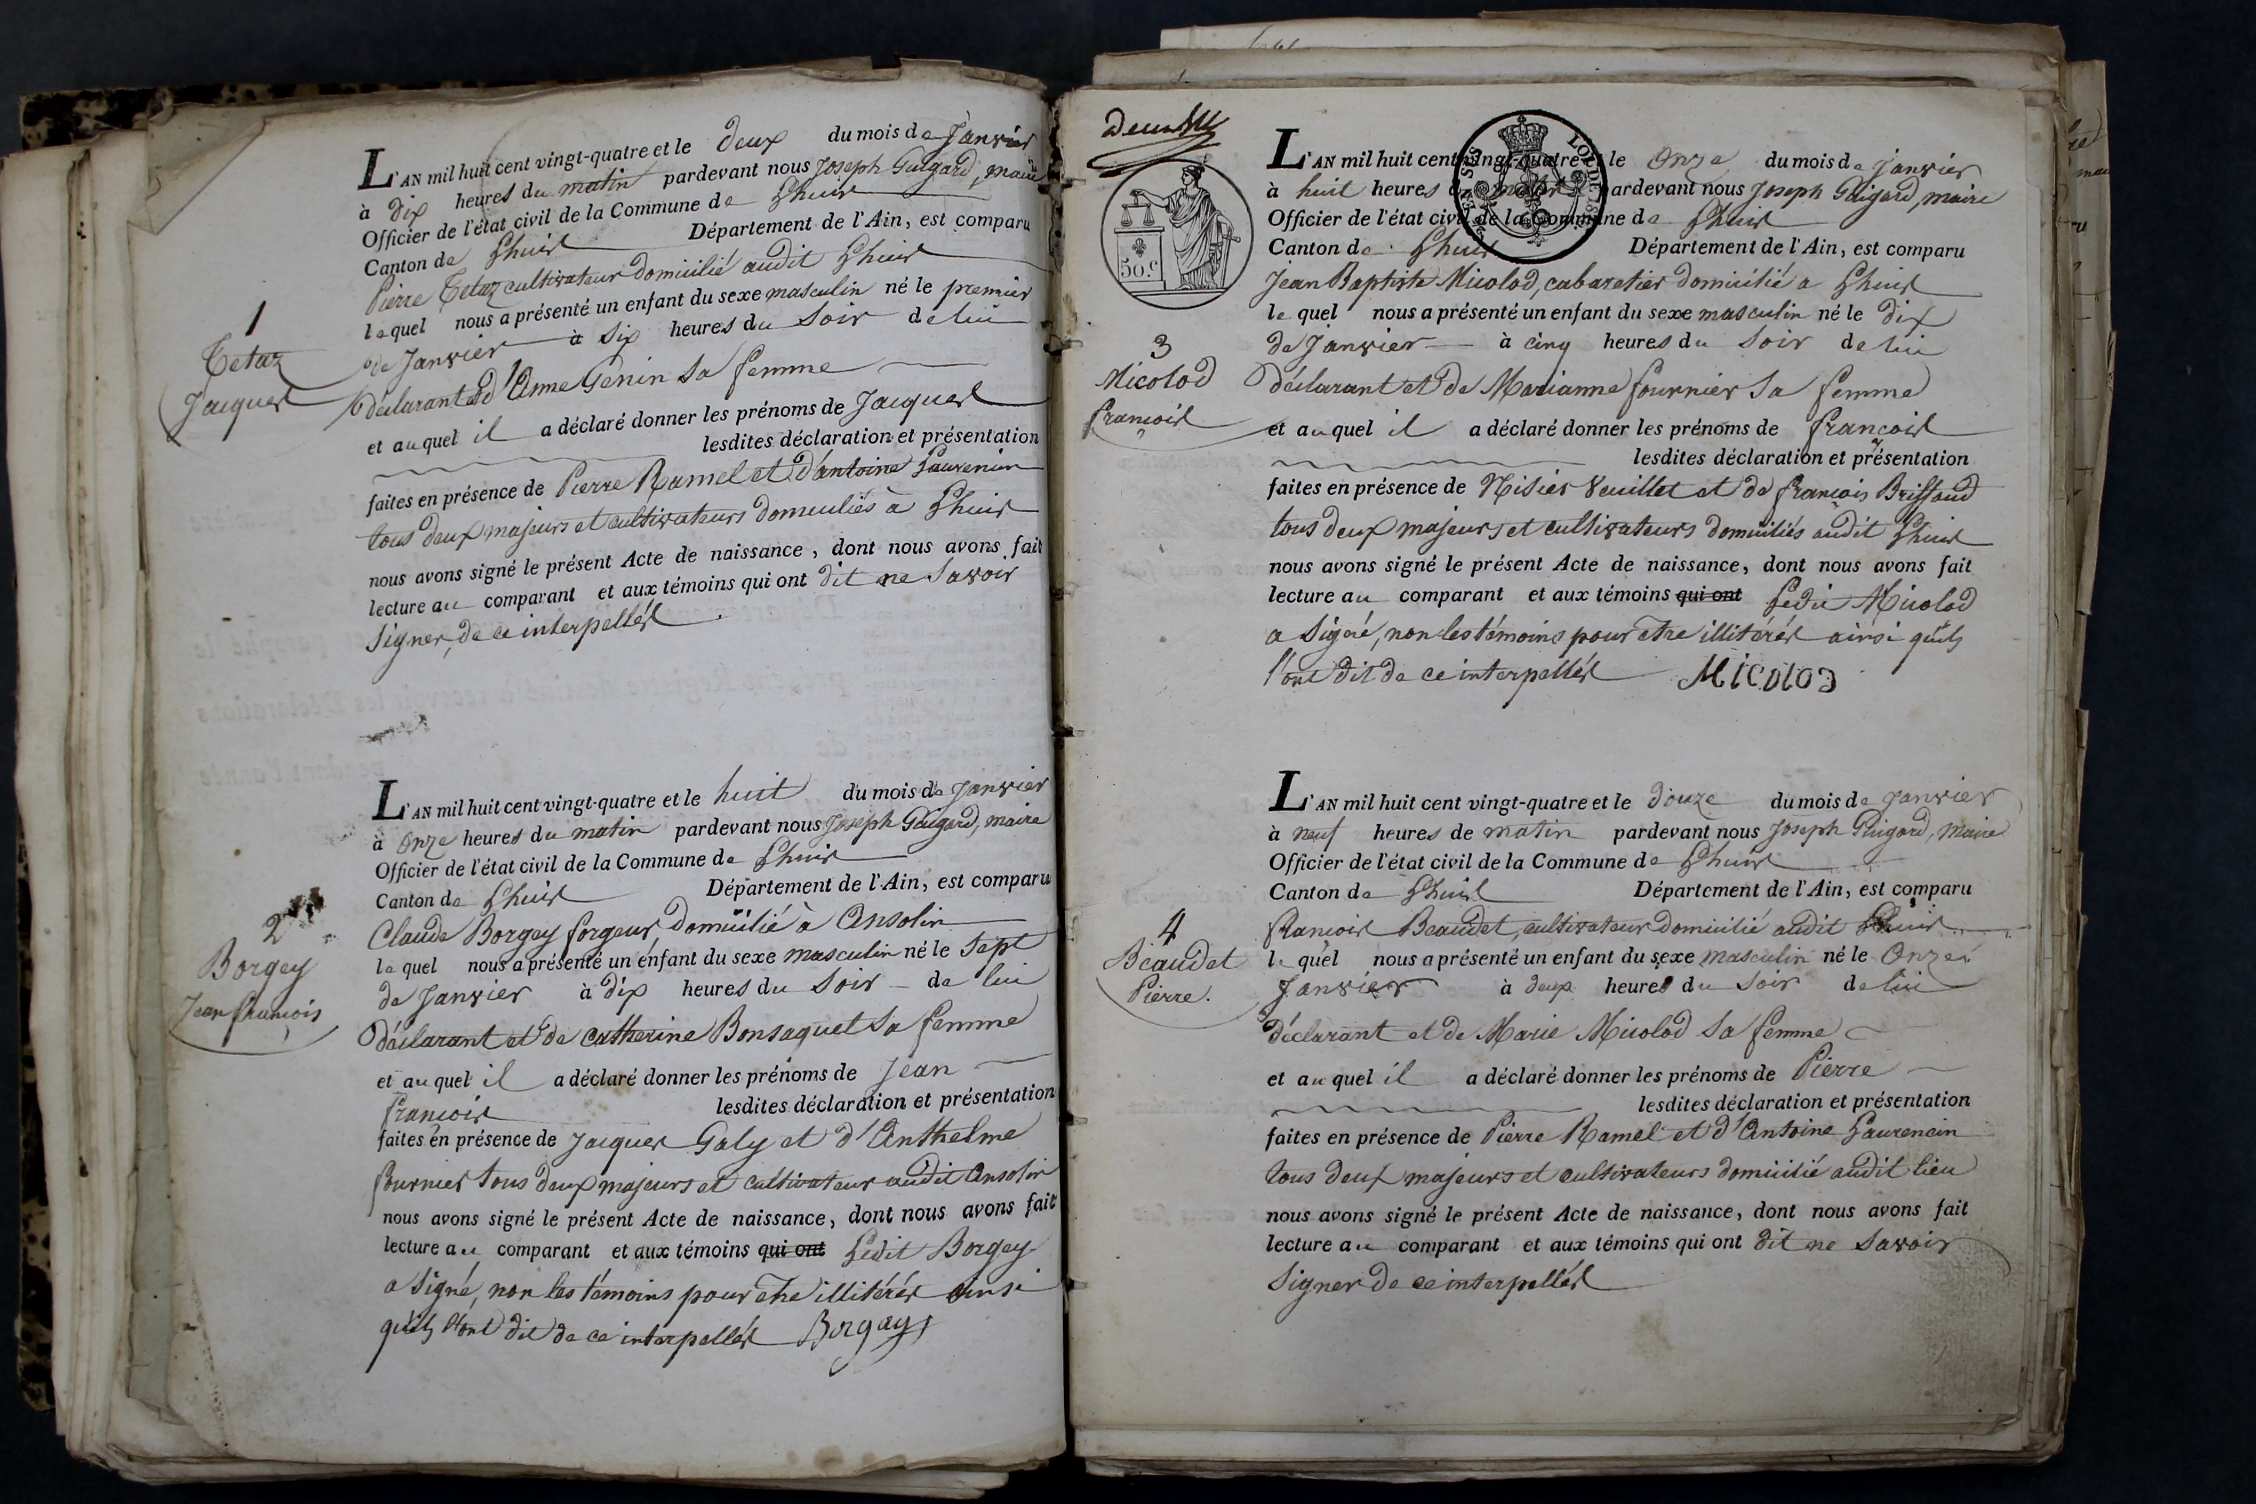 L'AN mil huit cent vingt-quatre et le deux du mois de Janvier
à dix heures du matin pardevant nous Joseph Guigard, maire
Officier de l'état civil de la Commune de Lhuis
Canton de Lhuis Département de l'Ain, est comparu
Pierre Tetaz cultivateur domicilié audit Lhuis
lequel nous a présenté un enfant du sexe masculin né le premier
de Janvier à Six heures du Soir de lui
1
Tetaz
Jacques
déclarant et d'Anne Genin Sa femme
et auquel il a déclaré donner les prénoms de Jacques
lesdites déclaration et présentation
faites en présence de Pierre Ramel et d'antoine Laurencin
tous deux majeurs et cultivateurs domiciliés à Lhuis
nous avons signé le présent Acte de naissance, dont nous avons fait
lecture au comparant et aux témoins qui ont dit ne Savoir
Signer, de ce interpellés
L'AN mil huit cent vingt-quatre et le huit du mois de Janvier
à onze heures du matin pardevant nous Joseph Guigard, maire
Officier de l'état civil de la Commune de Lhuis
Canton de Lhuis Département de l'Ain, est comparu
Claude Borgey forgeur domicilié à Ansolin
2
Borgey
Jean françois
lequel nous a présenté un enfant du sexe masculin né le Sept
de Janvier à dix heures du Soir de lui
déclarant et de catherine Bonsaquet Sa femme
et auquel il a déclaré donner les prénoms de Jean
françois lesdites déclaration et présentation
faites en présence de Jacques Galy et d'Anthelme
fournier tous deux majeurs et cultivateur audit Ansolin
nous avons signé le présent Acte de naissance, dont nous avons fait
lecture au comparant et aux témoins qui ont Ledit Borgey
a Signé, non les témoins pour etre illitérés ainsi
qu'ils l'ont dit de ce interpellés Borgey
50.c
L'AN mil huit cent vingt-quatre et le Onze du mois de Janvier
à huit heures du matin pardevant nous Joseph Guigard, maire
Officier de l'état civil de la Commune de Lhuis
Canton de Lhuis Département de l'Ain, est comparu
Jean Baptiste Micolod, cabaretier domicilié a Lhuis
lequel nous a présenté un enfant du sexe masculin né le dix
de Janvier à cinq heures du Soir de lui
3
Micolod
françois
déclarant et de Marianne fournier Sa femme
et auquel il a déclaré donner les prénoms de françois
lesdites déclaration et présentation
faites en présence de Nisier Veuillet et de françois Briffaud
tous deux majeurs et cultivateurs domiciliés audit Lhuis
nous avons signé le présent Acte de naissance, dont nous avons fait
lecture au comparant et aux témoins qui ont Ledit Micolod
a Signé, non les témoins pour etre illitérés ainsi qu'ils
l'ont dit de ce interpellés Micolod
L'AN mil huit cent vingt-quatre et le douze du mois de Janvier
à neuf heures de matin pardevant nous Joseph Guigard, maire
Officier de l'état civil de la Commune de Lhuis
Canton de Lhuis Département de l'Ain, est comparu
françois Beaudet, cultivateur domicilié audit Lhuis
4
Beaudet
Pierre.
lequel nous a présenté un enfant du sexe masculin né le Onze
Janvier à deux heures du Soir de lui
déclarant et de Marie Micolod Sa femme
et auquel il a déclaré donner les prénoms de Pierre
lesdites déclaration et présentation
faites en présence de Pierre Ramel et d'Antoine Laurencin
tous deux majeurs et cultivateurs domicilié audit lieu
nous avons signé le présent Acte de naissance, dont nous avons fait
lecture au comparant et aux témoins qui ont dit ne Savoir
Signer de ce interpellés